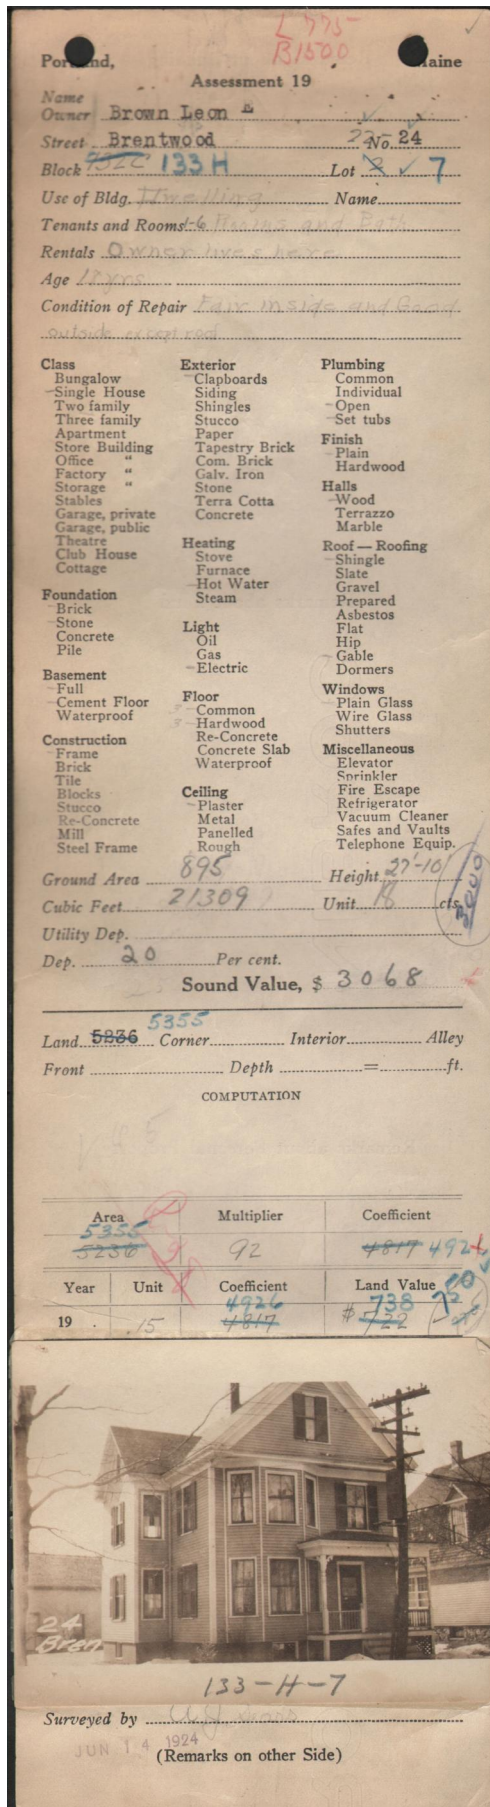 L 775
B1500
Portland, Maine
Assessment 19
Name
Owner Brown Leon E
Street Brentwood No. 24
Block 432C 133 H Lot 7
Use of Bldg. Dwelling Name
Tenants and Rooms 1-6 Rooms and Bath
Rentals Owner lives here.
Age yrs
Condition of Repair Fair inside and Good
outside except roof
Class
Bungalow
Single House
Two family
Three family
Apartment
Store Building
Office "
Factory "
Storage "
Stables
Garage, private
Garage, public
Theatre
Club House
Cottage
Foundation
Brick
Stone
Concrete
Pile
Basement
Full
Cement Floor
Waterproof
Construction
Frame
Brick
Tile
Blocks
Stucco
Re-Concrete
Mill
Steel Frame
Exterior
Clapboards
Siding
Shingles
Stucco
Paper
Tapestry Brick
Com. Brick
Galv. Iron
Stone
Terra Cotta
Concrete
Heating
Stove
Furnace
Hot Water
Steam
Light
Oil
Gas
Electric
Floor
3 Common
3 Hardwood
Re-Concrete
Concrete Slab
Waterproof
Ceiling
Plaster
Metal
Panelled
Rough
Plumbing
Common
Individual
Open
Set tubs
Finish
Plain
Hardwood
Halls
Wood
Terrazzo
Marble
Roof — Roofing
Shingle
Slate
Gravel
Prepared
Asbestos
Flat
Hip
Gable
Dormers
Windows
Plain Glass
Wire Glass
Shutters
Miscellaneous
Elevator
Sprinkler
Fire Escape
Refrigerator
Vacuum Cleaner
Safes and Vaults
Telephone Equip.
Ground Area 895 Height 27'-10"
Cubic Feet 21309 Unit 18 cts.
3000
Utility Dep.
Dep. 20 Per cent.
Sound Value, $ 3068
5355
Land 5236 Corner Interior Alley
Front Depth = ft.
COMPUTATION
Area Multiplier Coefficient
5355
5236 92 4817 4926
Year Unit Coefficient Land Value
4926 738 750
19 .15 4817 $ 722
24
Bren
133-H-7
Surveyed by
JUN 14 1924
(Remarks on other Side)